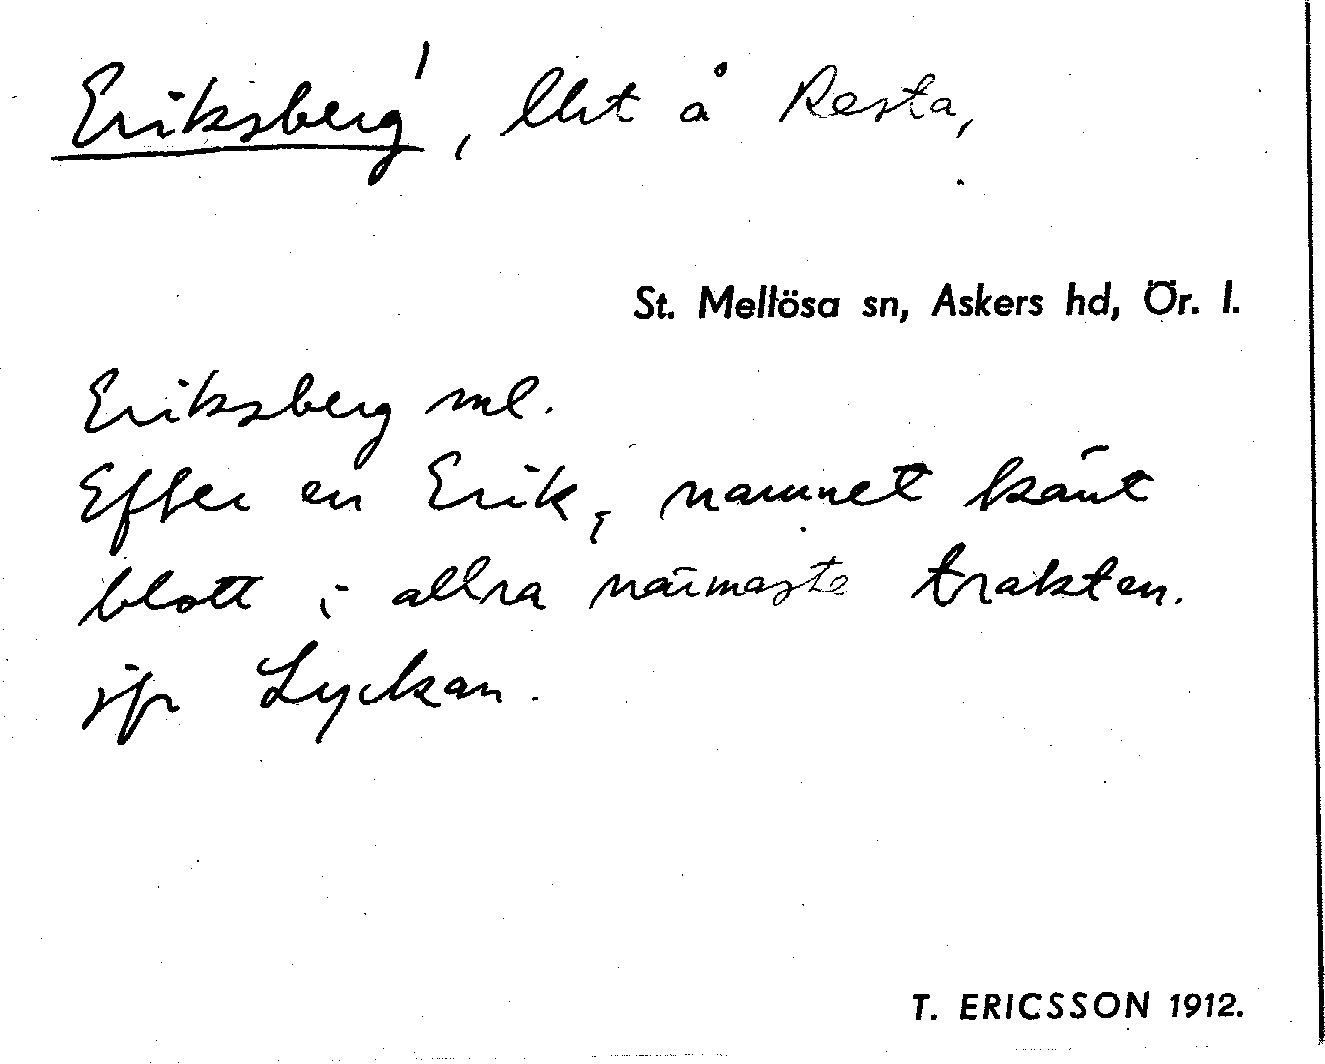 Eriksberg', lht å Resta,
St. Mellösa sn, Askers hd, Ör. l.
Eriksberg ml.
Efter en Erik, namnet känt
blott i allra närmaste trakten.
jfr Lyckan.
T. ERICSSON 1912.